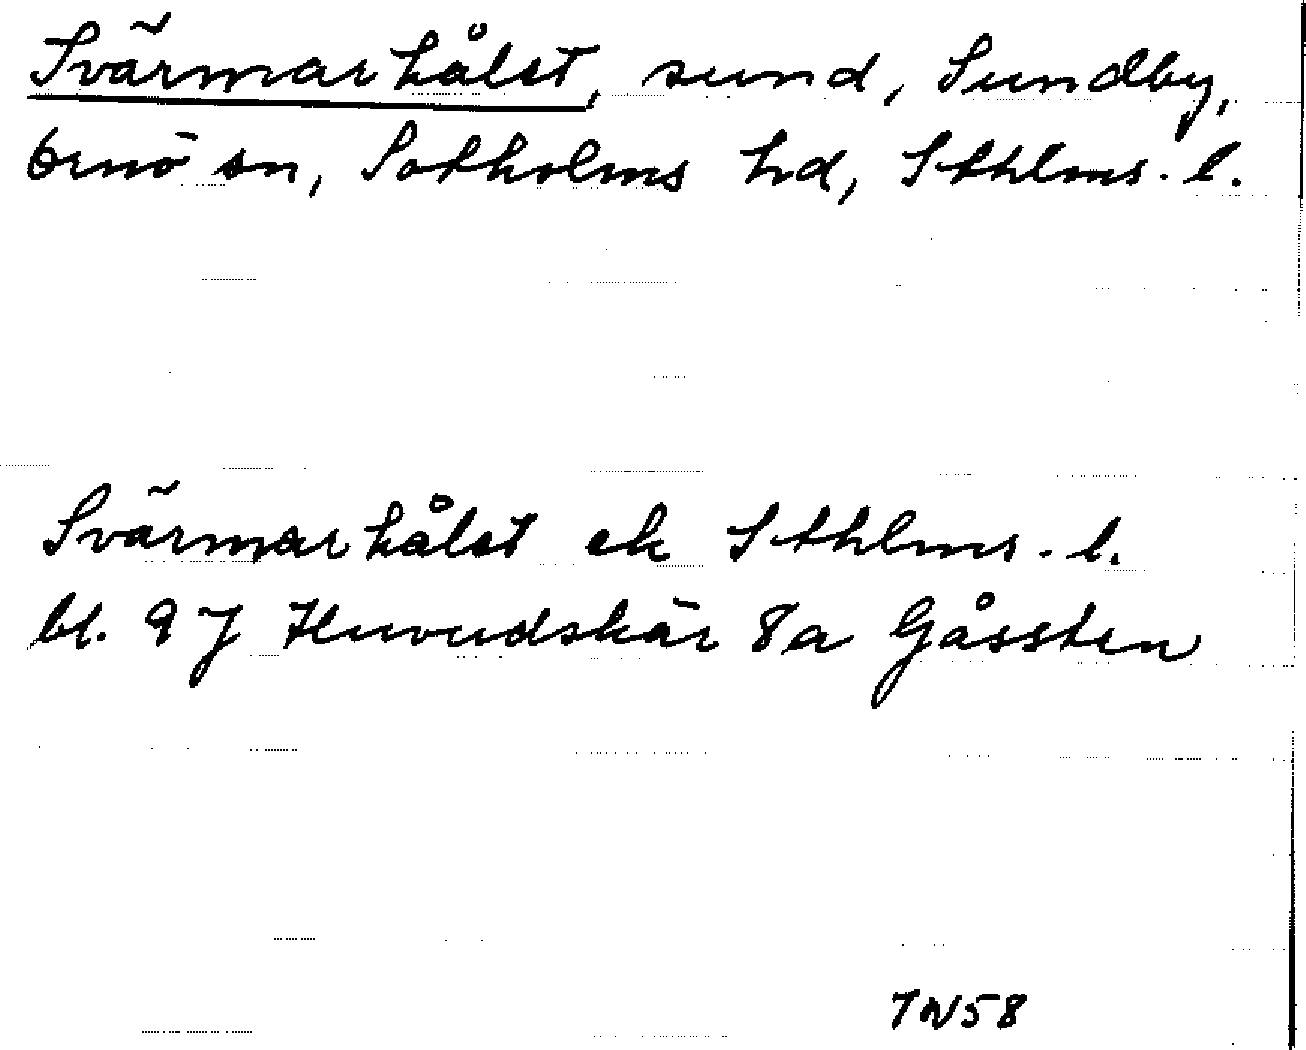 Svärmarhålet, sund, Sundby,
Ornö sn, Sotholms hd, Sthlms. l.
Svärmarhålet ek Sthlms. l.
bl. 9J Huvudskär 8a Gåssten
TN58